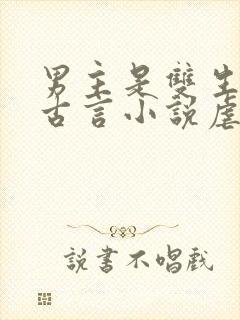 男主是雙生
古言小說虐
說書不唱戲